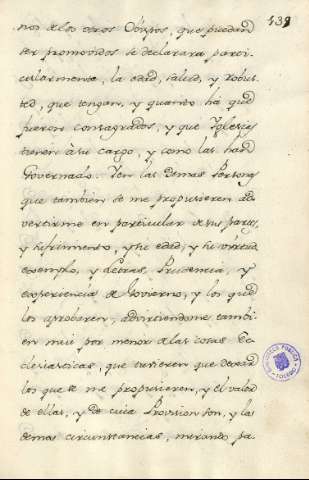 439
nos de los otros Obispos, que puedan
ser promovidos se declarara parti-
cularmente, la edad, salud, y Robus-
ted, que tengan, y quanto ha que
fueron consagrados, y que Iglesias
tienen à su cargo, y como las han
Governado. Y en las demas Personas
que tambien se me propusieren ad-
vertirme en particular de sus partes,
y su edad, y su virtud
exemplo, y Letras, Prudencia, y
experiencias de Govierno, y los que
los aprobaren, advirtiendome tambi-
en mui por menor de las cosas Ec-
clesiasticas, que tuvieren que
los que se me propusieren, y el valor
de ellas, y de cuia Provision son, y las
demas circunstancias, mirando pa-
BIBLIOTECA PUBLICA
TOLEDO